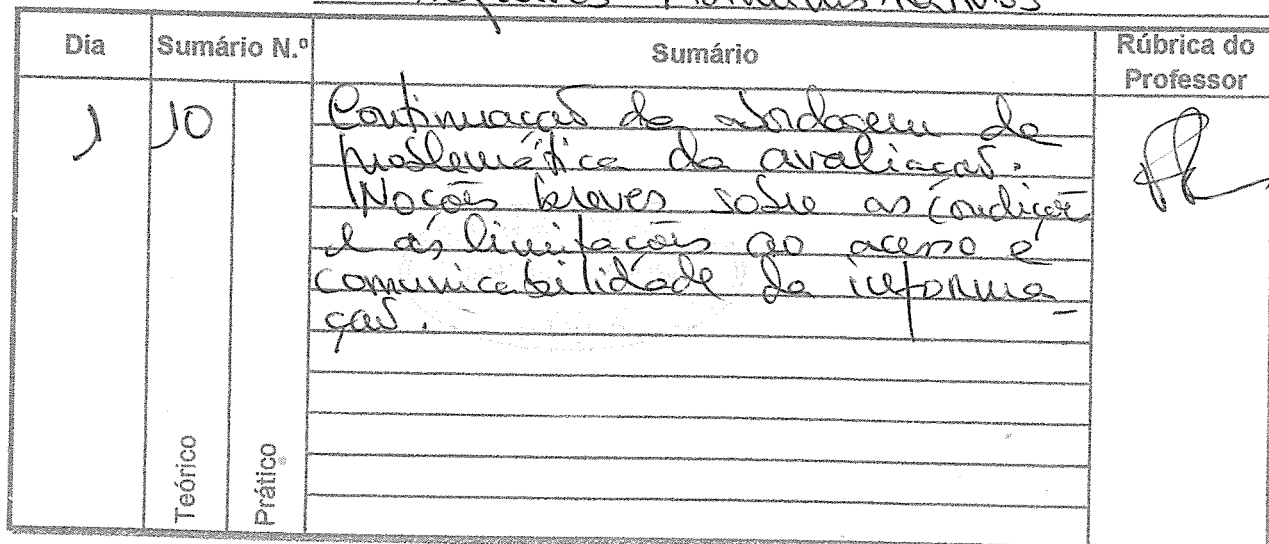 Administrativos
Dia
Sumário N.º
Sumário
Rúbrica do
Professor
1
10
Continuação da abordagem da
problemática da avaliação.
Noções breves sobre as condições
e as limitações ao acesso e
comunicabilidade da informa-
ção.
Teórico
Prático